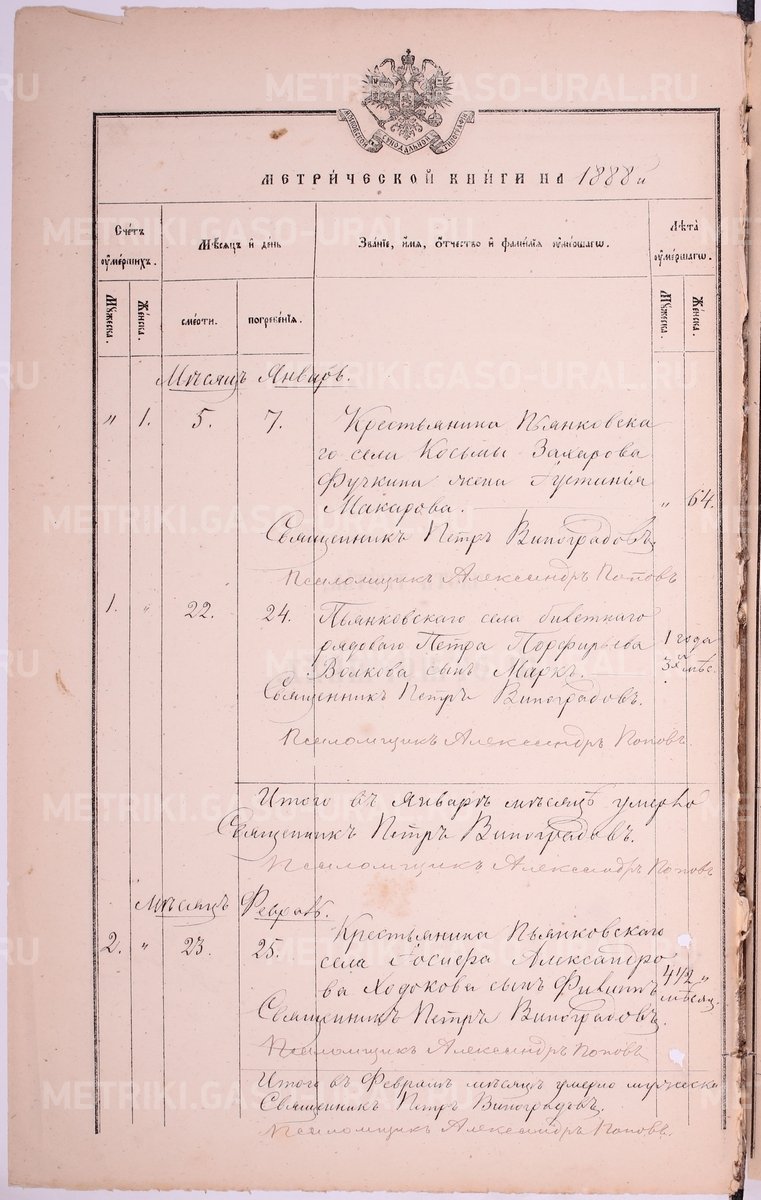 METRIKI.GASO-URAL.RU
МОСКОВСКОЙ СУНОДАЛЬНОЙ ТИПОГРАФІИ
МЕТРИ́ЧЕСКОЙ КНИ́ГИ НА 1888 й
Сче́тъ ᲂу҆ме́ршихъ.
Мѣ́сяцъ и҆ де́нь
Зва́нїе, и҆́мя, ѻ҆́тчество и҆ фами́лїѧ ᲂу҆ме́ршагѡ.
Лѣ́та ᲂу҆ме́ршагѡ.
Мꙋ́жеска.
Же́нска.
сме́рти.
погребе́нїѧ.
Мꙋ́жеска.
Же́нска.
Мѣсяцъ Январь.
" 1. 5. 7. Крестьянина Пьянковска
го села Косьмы Захарова
Фучкина жена Іустинія
Макарова. " 64.
Священникъ Петръ Виноградовъ.
Псаломщикъ Александръ Поповъ
1. " 22. 24. Пьянковскаго села билетнаго
рядоваго Петра Порфирьева 1 года
Волкова сынъ Маркъ. 3х мѣс.
Священникъ Петръ Виноградовъ.
Псаломщикъ Александръ Поповъ.
Итого въ Январѣ мѣсяцѣ умерло
Священникъ Петръ Виноградовъ.
Псаломщикъ Александръ Поповъ
мѣсяцъ Февраль.
2. " 23. 25. Крестьянина Пьянковскаго
села Іосифа Александро
ва Ходокова сынъ Филиппъ 4 1/2 "
мѣсяц.
Священникъ Петръ Виноградовъ.
Псаломщикъ Александръ Поповъ
Итого въ Февралѣ мѣсяцѣ умерло мужеска
Священникъ Петръ Виноградовъ.
Псаломщикъ Александръ Поповъ.